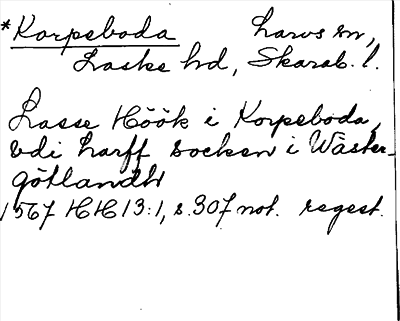 *Korpeboda Larvs sn,
Laske hd, Skarab. l.
Lasse Höök i Korpeboda,
vdi harff socken i Wäster-
götlandh
1567 HH 13:1, s. 307 not. regest.